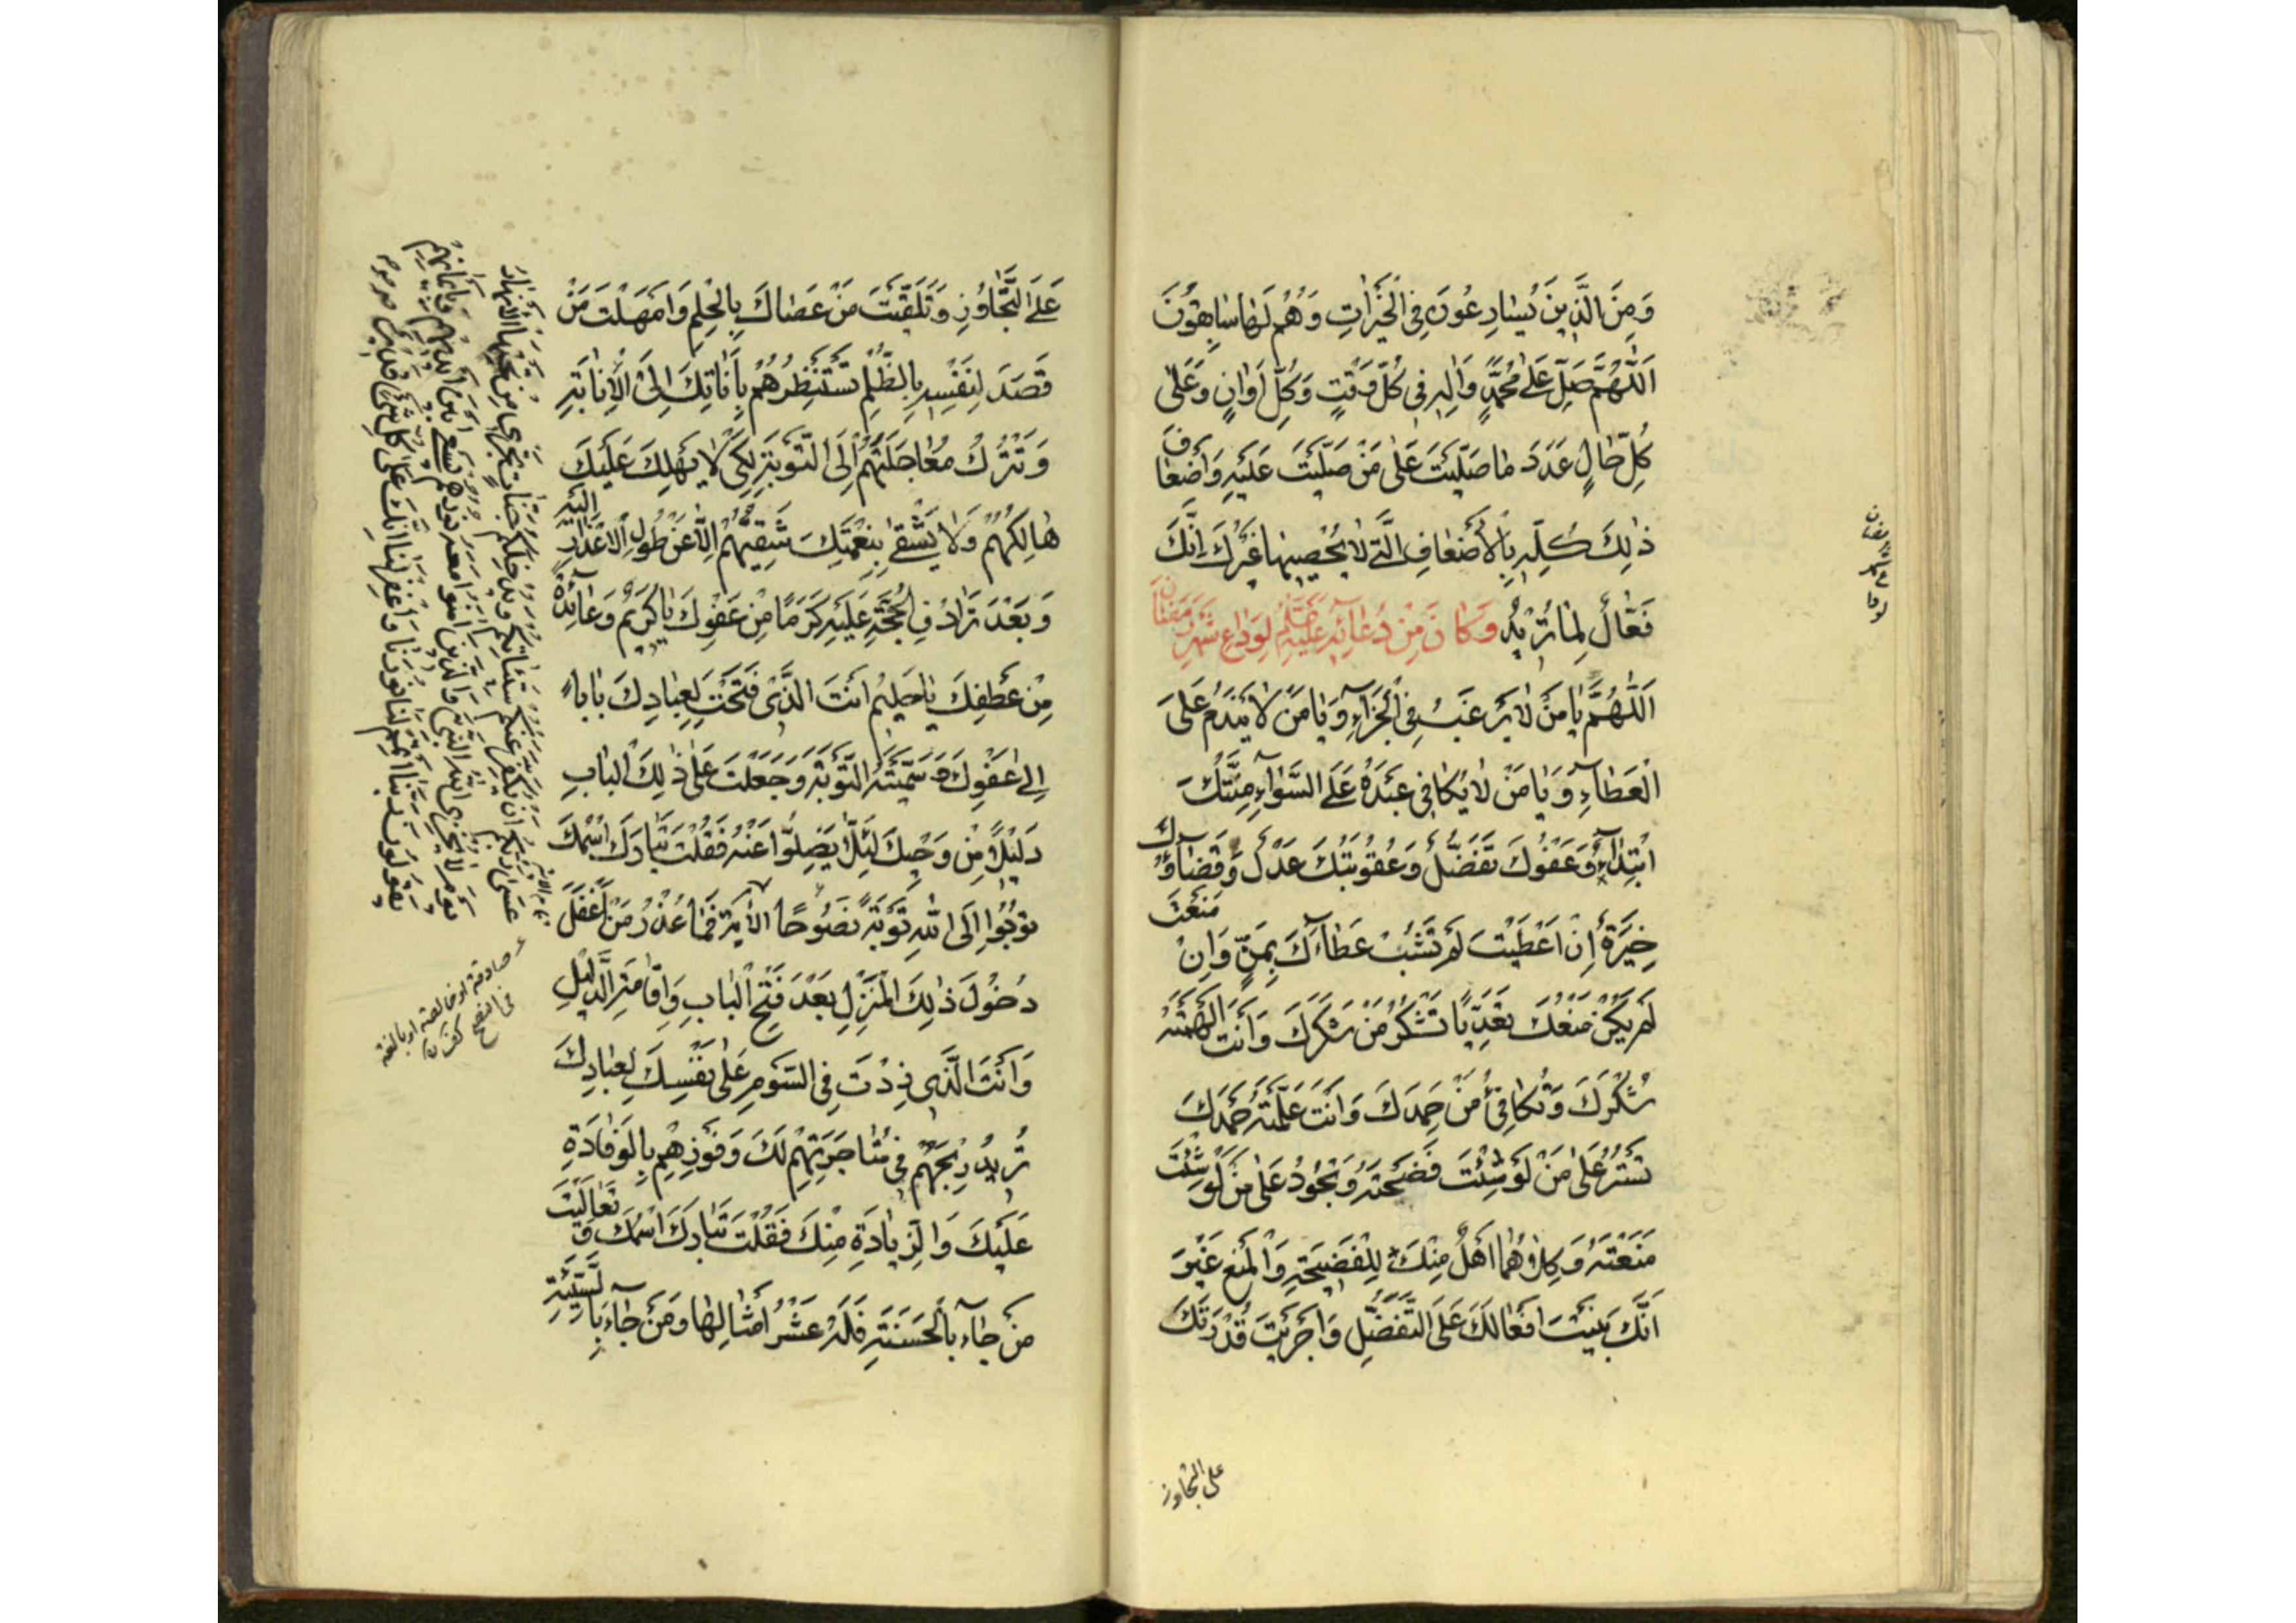 وَمِنَ الَّذِينَ يُسَارِعُونَ فِي الْخَيْرَاتِ وَهُمْ لَهَا سَابِقُونَ
اَللّٰهُمَّ صَلِّ عَلٰى مُحَمَّدٍ وَاٰلِهِ فِي كُلِّ وَقْتٍ وَكُلِّ اَوَانٍ وَعَلٰى
كُلِّ حَالٍ عَدَدَ مَا صَلَّيْتَ عَلٰى مَنْ صَلَّيْتَ عَلَيْهِ وَاَضْعَافَ
ذٰلِكَ كُلِّهِ بِالْاَضْعَافِ الَّتِي لَا يُحْصِيهَا غَيْرُكَ اِنَّكَ
فَعَّالٌ لِمَا تُرِيدُ وَكَانَ مِنْ دُعَائِهِ عَلَيْهِ لِوَدَاعِ شَهْرِ رَمَضَانَ
اَللّٰهُمَّ يَا مَنْ لَا يَرْغَبُ فِي الْجَزَاءِ وَيَا مَنْ لَا يَنْدَمُ عَلَى
الْعَطَاءِ وَيَا مَنْ لَا يُكَافِي عَبْدَهُ عَلَى السَّوَاءِ مِنَّتُكَ
ابْتِدَاءٌ وَعَفْوُكَ تَفَضُّلٌ وَعُقُوبَتُكَ عَدْلٌ وَقَضَاؤُكَ
خِيَرَةٌ اِنْ اَعْطَيْتَ لَمْ تَشُبْ عَطَاءَكَ بِمَنٍّ وَاِنْ مَنَعْتَ
لَمْ يَكُنْ مَنْعُكَ تَعَدِّيًا تَشْكُرُ مَنْ شَكَرَكَ وَاَنْتَ اَلْهَمْتَهُ
شُكْرَكَ وَتُكَافِئُ مَنْ حَمِدَكَ وَاَنْتَ عَلَّمْتَهُ حَمْدَكَ
تَسْتُرُ عَلٰى مَنْ لَوْ شِئْتَ فَضَحْتَهُ وَتَجُودُ عَلٰى مَنْ لَوْ شِئْتَ
مَنَعْتَهُ وَكِلَاهُمَا اَهْلٌ مِنْكَ لِلْفَضِيحَةِ وَالْمَنْعِ غَيْرَ
اَنَّكَ بَنَيْتَ اَفْعَالَكَ عَلَى التَّفَضُّلِ وَاَجْرَيْتَ قُدْرَتَكَ
على التجاوز
عَلَى التَّجَاوُزِ وَتَلَقَّيْتَ مَنْ عَصَاكَ بِالْحِلْمِ وَاَمْهَلْتَ مَنْ
قَصَدَ لِنَفْسِهِ بِالظُّلْمِ تَسْتَنْظِرُهُمْ بِاَنَاتِكَ اِلَى الْاِنَابَةِ
وَتَتْرُكُ مُعَاجَلَتَهُمْ اِلَى التَّوْبَةِ لِكَيْ لَا يَهْلِكَ عَلَيْكَ
هَالِكُهُمْ وَلَا يَشْقٰى بِنِعْمَتِكَ شَقِيُّهُمْ اِلَّا عَنْ طُولِ الْاِعْذَارِ اِلَيْهِ
وَبَعْدَ تَرَادُفِ الْحُجَّةِ عَلَيْهِ كَرَمًا مِنْ عَفْوِكَ يَا كَرِيمُ وَعَائِدَةً
مِنْ عَطْفِكَ يَا حَلِيمُ اَنْتَ الَّذِي فَتَحْتَ لِعِبَادِكَ بَابًا
اِلٰى عَفْوِكَ وَسَمَّيْتَهُ التَّوْبَةَ وَجَعَلْتَ عَلٰى ذٰلِكَ الْبَابِ
دَلِيلًا مِنْ وَحْيِكَ لِئَلَّا يَضِلُّوا عَنْهُ فَقُلْتَ تَبَارَكَ اسْمُكَ
تُوبُوا اِلَى اللّٰهِ تَوْبَةً نَصُوحًا الْاٰيَةَ فَمَا عُذْرُ مَنْ اَغْفَلَ
دُخُولَ ذٰلِكَ الْمَنْزِلِ بَعْدَ فَتْحِ الْبَابِ وَاِقَامَةِ الدَّلِيلِ
وَاَنْتَ الَّذِي زِدْتَ فِي السَّوْمِ عَلٰى نَفْسِكَ لِعِبَادِكَ
تُرِيدُ رِبْحَهُمْ فِي مُتَاجَرَتِهِمْ لَكَ وَفَوْزَهُمْ بِالْوِفَادَةِ
عَلَيْكَ وَالزِّيَادَةِ مِنْكَ فَقُلْتَ تَبَارَكَ اسْمُكَ وَتَعَالَيْتَ
مَنْ جَاءَ بِالْحَسَنَةِ فَلَهُ عَشْرُ اَمْثَالِهَا وَمَنْ جَاءَ بِالسَّيِّئَةِ
تمام الآية
عَسٰى رَبُّكُمْ اَنْ يُكَفِّرَ عَنْكُمْ سَيِّئَاتِكُمْ وَيُدْخِلَكُمْ جَنَّاتٍ تَجْرِي مِنْ تَحْتِهَا الْاَنْهَارُ
يَوْمَ لَا يُخْزِي اللّٰهُ النَّبِيَّ وَالَّذِينَ اٰمَنُوا مَعَهُ نُورُهُمْ يَسْعٰى بَيْنَ اَيْدِيهِمْ وَبِاَيْمَانِهِمْ
يَقُولُونَ رَبَّنَا اَتْمِمْ لَنَا نُورَنَا وَاغْفِرْ لَنَا اِنَّكَ عَلٰى كُلِّ شَيْءٍ قَدِيرٌ
صادقة او خالصة او بالغة
في النصح